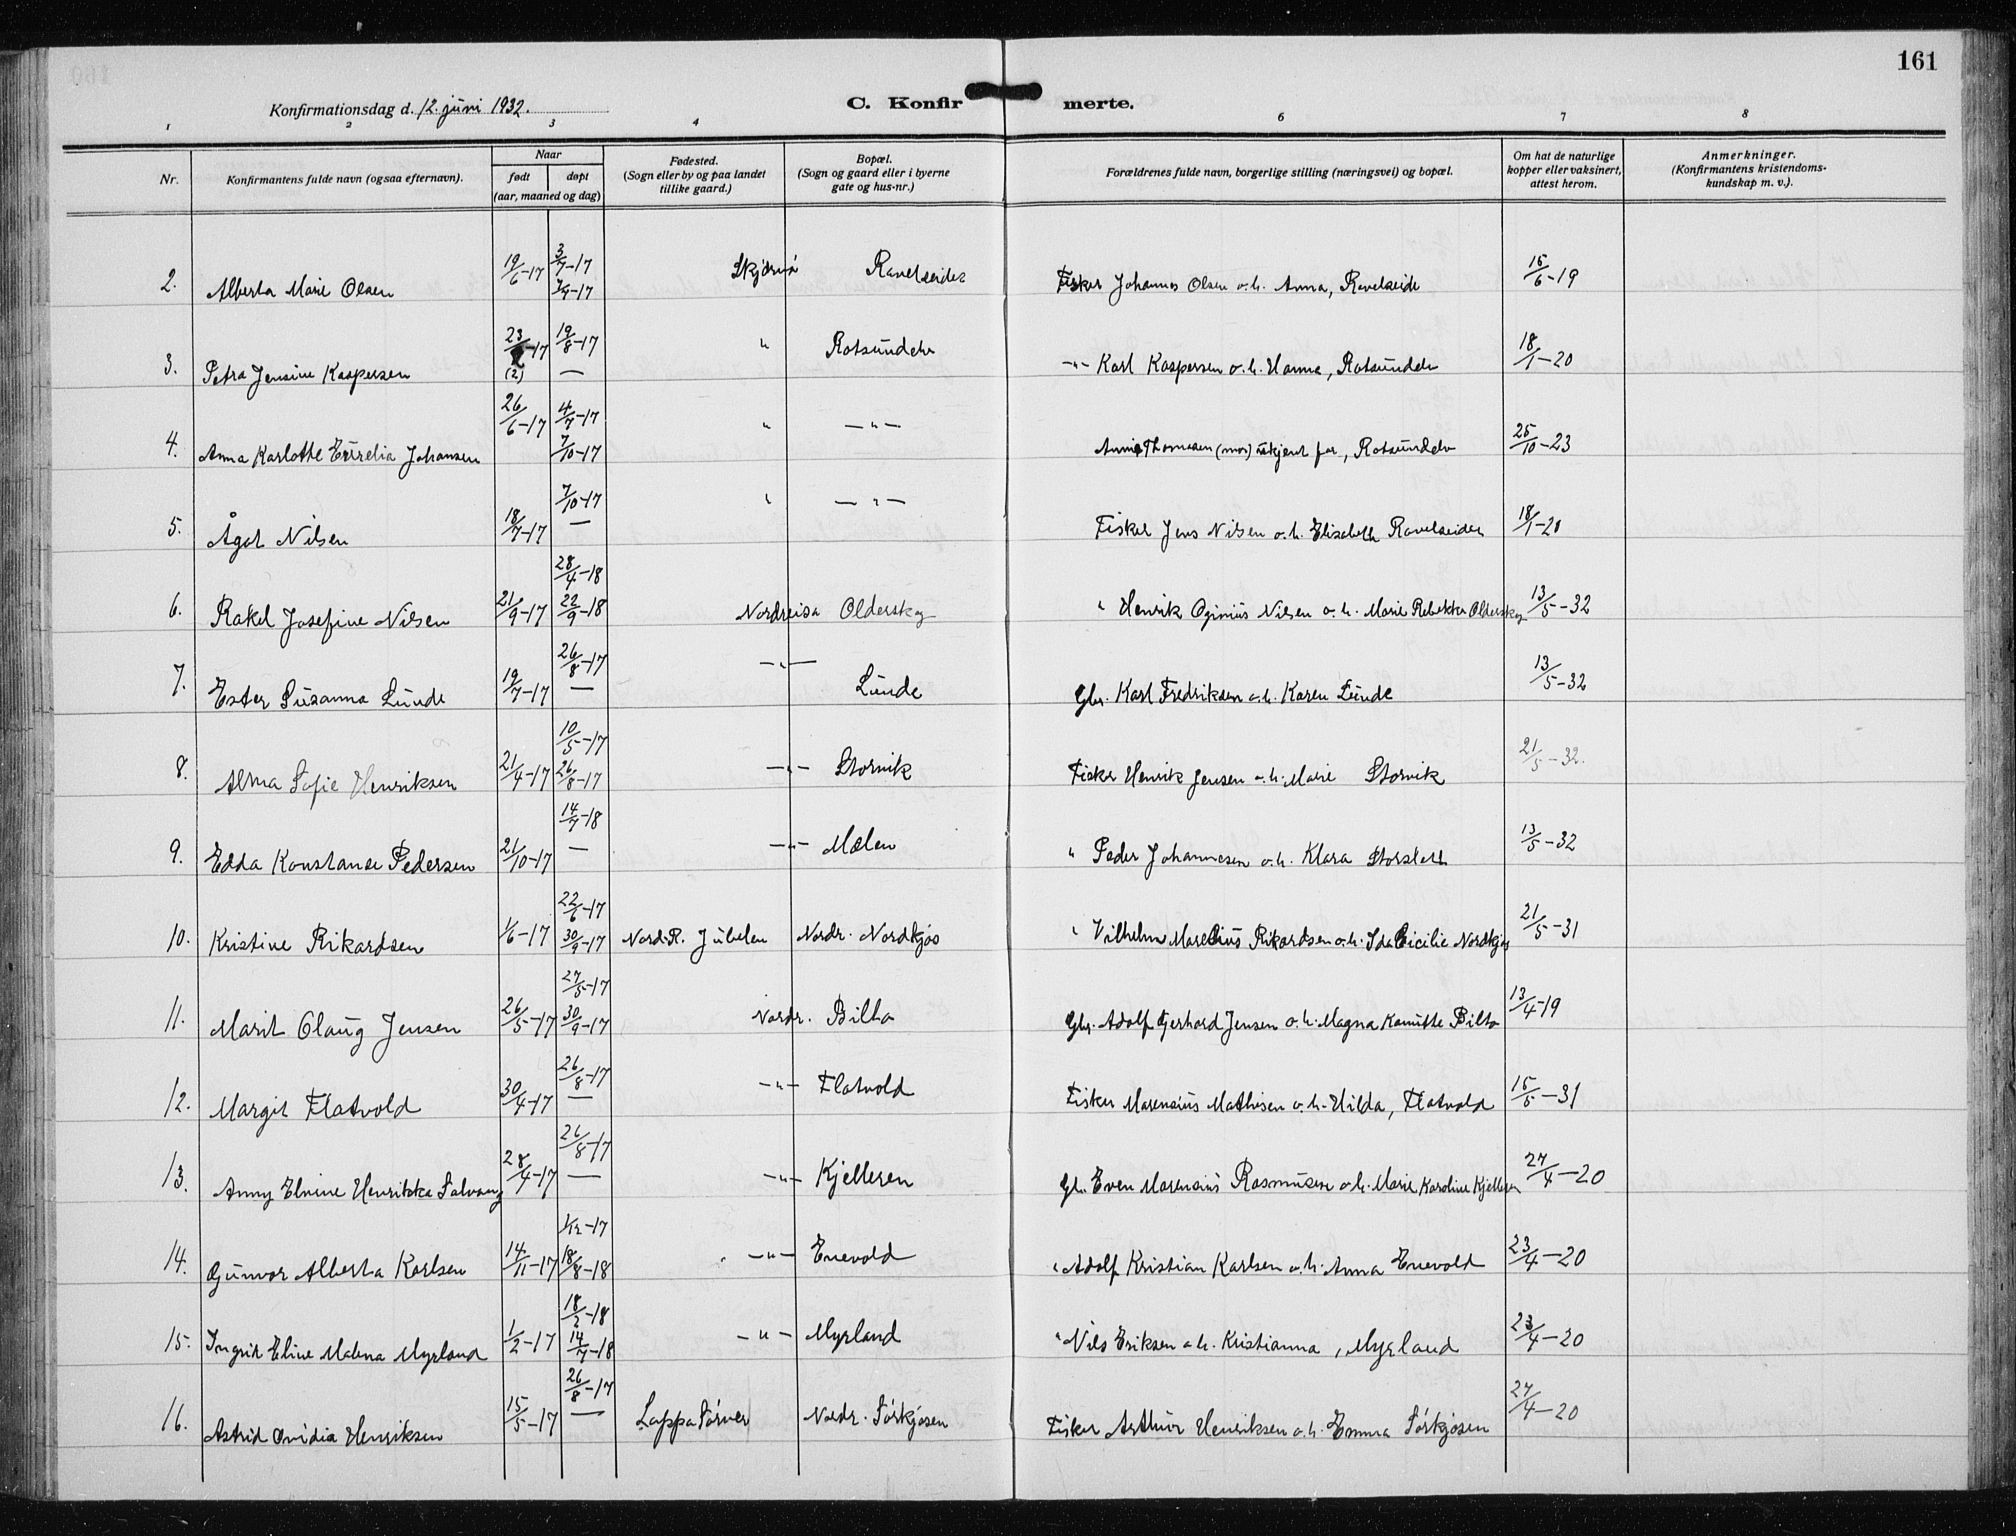 161
Konfirmationsdag d. 12. juni 1932.
C. Konfirmerte.
1 2 3 4 6 7 8
Nr. Konfirmantens fulde navn (ogsaa efternavn). Naar født døpt (aar, maaned og dag) Fødested. (Sogn eller by og paa landet tillike gaard.) Bopæl. (Sogn og gaard eller i byerne gate og hus-nr.) Forældrenes fulde navn, borgerlige stilling (næringsvei) og bopæl. Om hat de naturlige kopper eller vaksinert, attest herom. Anmerkninger. (Konfirmantens kristendoms- kundskap m. v.).
2. Alberta Marie Olsen 19/6-17 3/7-17 Skjervø Ravelseidet Fisker Johannes Olsen o.h. Anna, Ravelseide 15/6-19
3. Petra Jensine Kaspersen 23/2-17 (2) 19/8-17 — " Rotsundelv -"- Karl Kaspersen o.h. Hanna, Rotsundelv 18/1-20
4. Anna Karlotte Johansen 26/6-17 4/7-17 7/10-17 " -"- Thomasen (mor) ukjent far, Rotsundelv 25/10-23
5. Ågot Nilsen 18/7-17 7/10-17 — " -"- Fisker Jens Nilsen o.h. Elisabeth Ravelseidet 18/1-20
6. Rakel Josefine Nilsen 21/9-17 28/4-18 22/9-18 Nordreisa Olderskog " Henrik Nilsen o.h. Marie Rebekka Olderskog 13/5-32
7. Ester Susanna Lunde 19/7-17 26/8-17 — -"- Lunde Gbr. Karl Fredriksen o.h. Karen Lunde 13/5-32
8. Alma Sofie Henriksen 21/4-17 10/5-17 26/8-17 -"- Storvik Fisker Henrik Jensen o.h. Marie Storvik 21/5-32.
9. Edda Konstanse Pedersen 21/10-17 14/7-18 — -"- Mælen " Peder Johannesen o.h. Klara Storslett 13/5-32
10. Kristine Rikardsen 1/6-17 22/6-17 30/9-17 Nord.R. Jubelen Nordr. Nordkjos " Vilhelm Marelius Rikardsen o.h. Ida Cicilie Nordkjos 21/5-31
11. Marit Olaug Jensen 26/5-17 27/5-17 30/9-17 Nordr. Bilto Gbr. Adolf Gerhard Jensen o.h. Magna Bilto 13/4-19
12. Margit Flatvold 30/4-17 26/8-17 — -"- Flatvold Fisker Marensius Mathisen o.h. Hilda, Flatvold 15/5-31
13. Anny Elvine Henrikka Salvang 28/4-17 26/8-17 — -"- Kjelleren Gb. Even Marensius Rasmussen o.h. Marie Karoline Kjelleren 27/4-20
14. Gunvor Alberta Karlsen 14/11-17 1/12-17 18/8-18 -"- Enevold " Adolf Kristian Karlsen o.h. Anna Enevold 23/4-20
15. Ingrid Eline Malena Myrland 1/2-17 18/2-18 14/7-18 -"- Myrland " Nils Eriksen o.h. Kristianna, Myrland 23/4-20
16. Astrid Ovidia Henriksen 15/5-17 26/8-17 — Nordr. Sørkjosen Fisker Arthur Henriksen o.h. Emma Sørkjosen 27/4-20